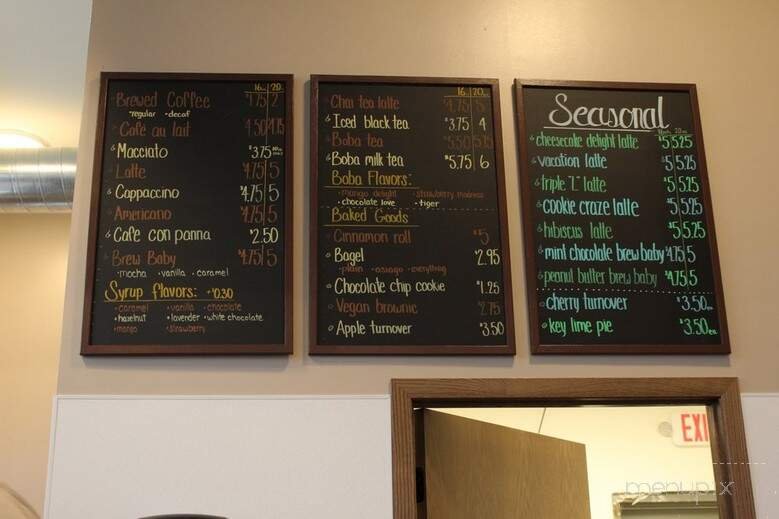 16oz 20oz
Brewed Coffee $1.75 2
•regular •decaf
Café au lait 4.50 4.75
Macciato $3.75
Latte $4.75 5
Cappuccino $4.75 5
Americano $4.75 5
Cafe con panna $2.50
Brew Baby $4.75 5
•mocha •vanilla •caramel
Syrup flavors: +0.30
•caramel •vanilla •chocolate
•hazelnut •lavender •white chocolate
•mango •strawberry
16oz 20oz
Chai tea latte $4.75 5
Iced black tea $3.75 4
Boba tea $5.50 5.75
Boba milk tea $5.75 6
Boba Flavors:
•mango delight •strawberry madness
•chocolate love •tiger
Baked Goods
Cinnamon roll $5
Bagel $2.95
•plain •asiago •everything
Chocolate chip cookie $1.25
Vegan brownie $2.75
Apple turnover $3.50
Seasonal
16oz 20oz
cheesecake delight latte $5 5.25
vacation latte $5 5.25
triple "L" latte $5 5.25
cookie craze latte $5 5.25
hibiscus latte $5 5.25
mint chocolate brew baby $4.75 5
peanut butter brew baby $4.75 5
cherry turnover $3.50 ea.
key lime pie $3.50 ea.
EXI
menupix